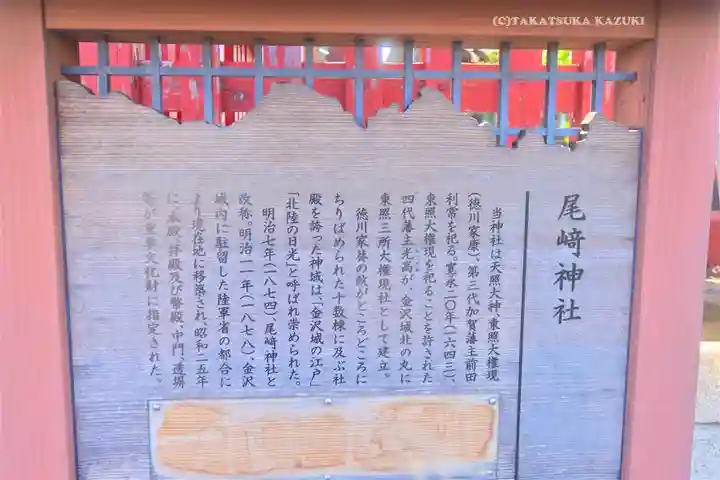 (C)TAKATSUKA KAZUKI
尾﨑神社
当神社は天照大神、東照大権現
(徳川家康)、第三代加賀藩主前田
利常を祀る。寛永二〇年(一六四三)、
東照大権現を祀ることを許された
四代藩主光高が、金沢城北の丸に
東照三所大権現社として建立。
徳川家葵の紋がところどころに
ちりばめられた十数棟に及ぶ社
殿を誇った神域は、「金沢城の江戸」
「北陸の日光」と呼ばれ崇められた。
明治七年(一八七四)、尾﨑神社と
改称。明治一一年(一八七八)、金沢
城内に駐留した陸軍省の都合に
より現在地に移築され、昭和二五年
に、本殿、拝殿及び幣殿、中門、透塀
等が重要文化財に指定された。